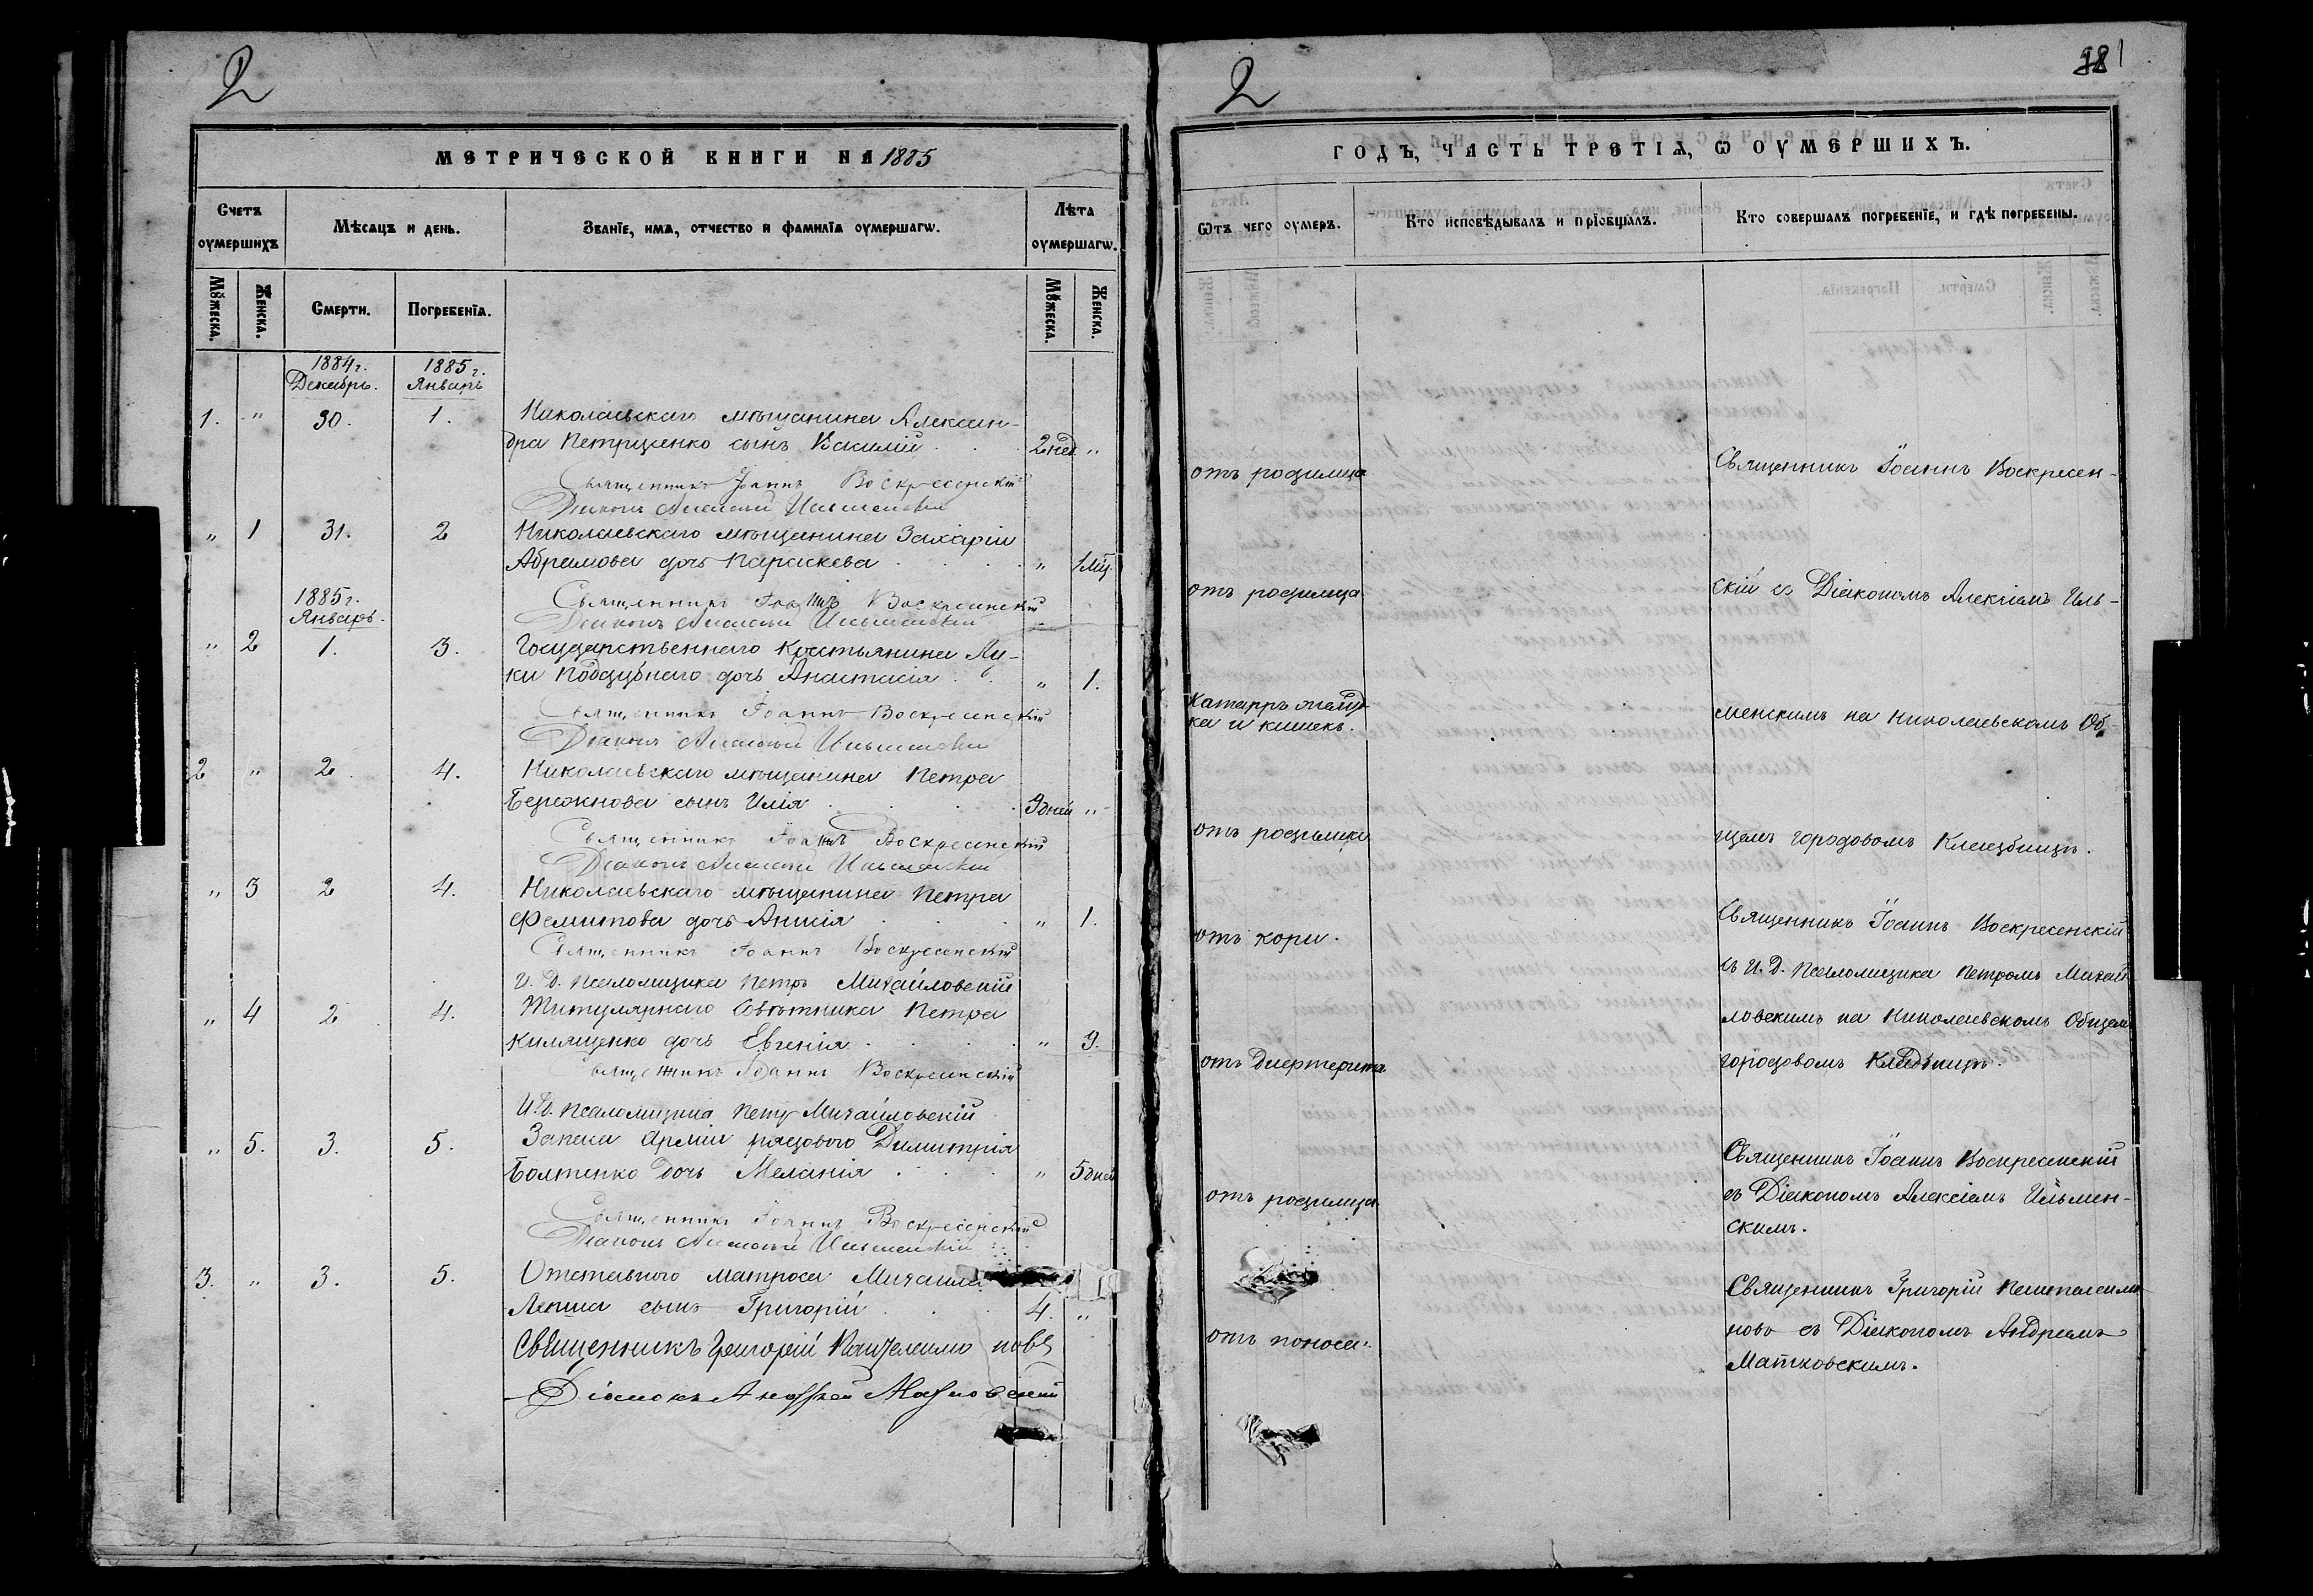 2
МЕТРИЧЕСКОЙ КНИГИ НА 1885
Счетъ оумершихъ
Мѣсяцъ и день.
Званїе, имя, отчество и фамилїя оумершагѡ.
Лѣта оумершагѡ.
Мꙋжеска.
Женска.
Смерти.
Погребенїя.
Мꙋжеска.
Женска.
1884 г. Декабрь.
1885 г. Январь
1. " 30. 1. Николаевскаго мѣщанина Алексан-
дра Петриценко сынъ Василій 2 нед. "
Священникъ Іоаннъ Воскресенскій
Діаконъ Алексій Ильменскій
" 1 31. 2 Николаевскаго мѣщанина Захарія
Абрамова дочь Параскева " 1 мц.
1885 г. Январь.
Священникъ Іоаннъ Воскресенскій
Діаконъ Алексій Ильменскій
" 2 1. 3. Государственнаго Крестьянина Лу-
ки Поддубнаго дочь Анастасія " 1.
Священникъ Іоаннъ Воскресенскій
Діаконъ Алексій Ильменскій
2 " 2. 4. Николаевскаго мѣщанина Петра
Бережнова сынъ Илія 9 дней "
Священникъ Іоаннъ Воскресенскій
Діаконъ Алексій Ильменскій
" 3 2 4. Николаевскаго мѣщанина Петра
дочь Анисія " 1.
Священникъ Іоаннъ Воскресенскій
И. Д. Псаломщика Петръ Михайловскій
" 4 2 4. Титулярнаго Совѣтника Петра
Килященко дочь Евгенія " 9.
Священникъ Іоаннъ Воскресенскій
И. Д. Псаломщика Петръ Михайловскій
" 5. 3. 5. Запаса Арміи рядового Димитрія
Болтенко дочь Меланія " 5 дней
Священникъ Іоаннъ Воскресенскій
Діаконъ Алексій Ильменскій
3. " 3. 5. Отставного матроса Михаила
сынъ Григорій 4. "
Священникъ Григорій Пантелеимоновъ
Діаконъ Андрей Матковскій
2
ГОДЪ, ЧАСТЬ ТРЕТІЯ, Ѡ ОУМЕРШИХЪ.
Ѿтъ чего оумеръ.
Кто исповѣдывалъ и прїобщалъ.
Кто совершалъ погребенїе, и гдѣ погребены.
отъ родимца
Священникъ Іоаннъ Воскресен-
отъ родимца
скій съ Діакономъ Алексіемъ Иль-
Катарръ желуд-
ка и кишекъ.
менскимъ на Николаевскомъ Об-
отъ родимца
щемъ городовомъ Кладбищѣ.
отъ кори.
Священникъ Іоаннъ Воскресенскій
съ И. Д. Псаломщика Петромъ Михай
ловскимъ на Николаевскомъ Общемъ
отъ Дифтерита
городовомъ Кладбищѣ.
отъ родимца
Священникъ Іоаннъ Воскресенскій
съ Діакономъ Алексіемъ Ильмен-
скимъ.
отъ поноса.
Священникъ Григорій Пантелеимо-
новъ съ Діакономъ Андреемъ
Матковскимъ.